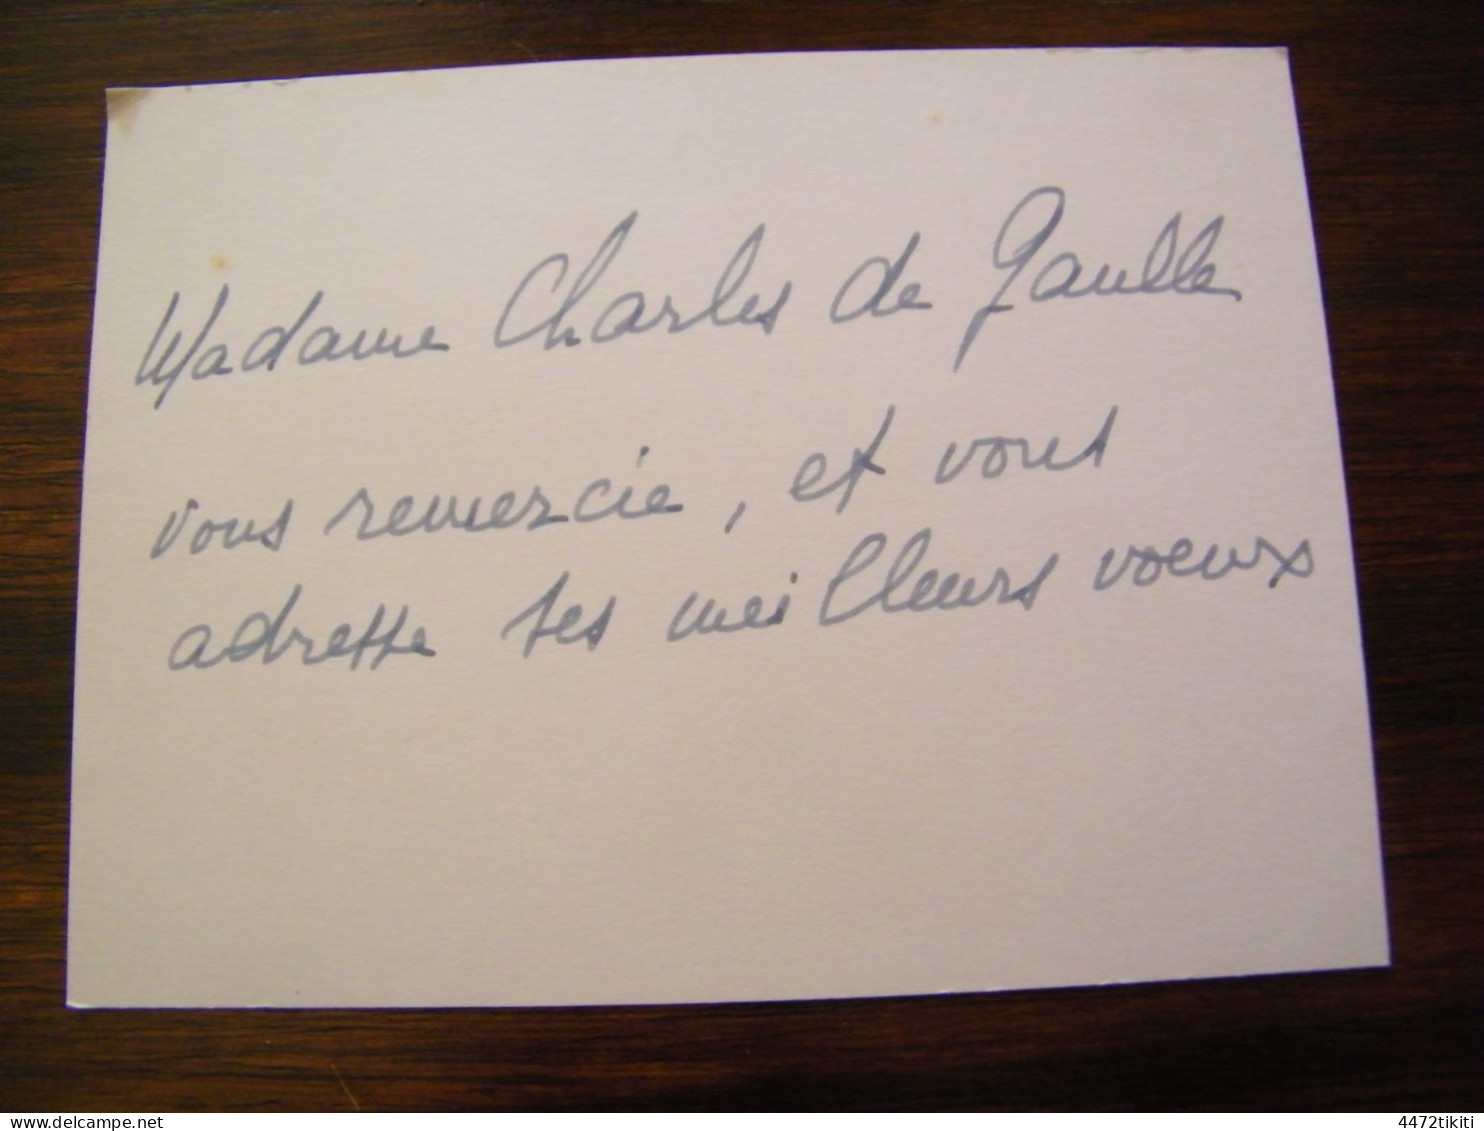 Madame Charles de Gaulle
vous remercie, et vous
adresse ses meilleurs voeux
delcampe.net
4472tikiti